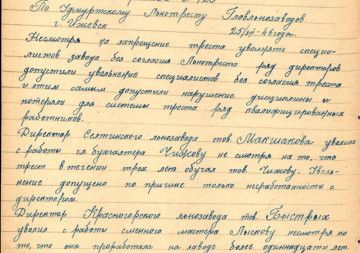 По Удмуртскому Льнотресту Главльнозаводов
г. Ижевск 25/XII-46 года.
Несмотря на запрещение треста увольнять специа-
листов завода без согласия Льнотреста ряд директоров
допустили увольнение специалистов без согласия треста
и этим самым допустили нарушение дисциплины и
потеряли для системы треста ряд квалифицированных
работников.
Директор Селтинского льнозавода тов. Макшакова уволила
с работы гл. бухгалтера Чижову не смотря на то, что
трест в течении трех лет обучал тов. Чижову. Уволь-
нение допущено по причине только несработанности с
директором.
Директор Красногорского льнозавода тов. Быстрых
уволил с работы сменного мастера Лыскову несмотря на
то, что она проработала на заводе более одиннадцати лет.